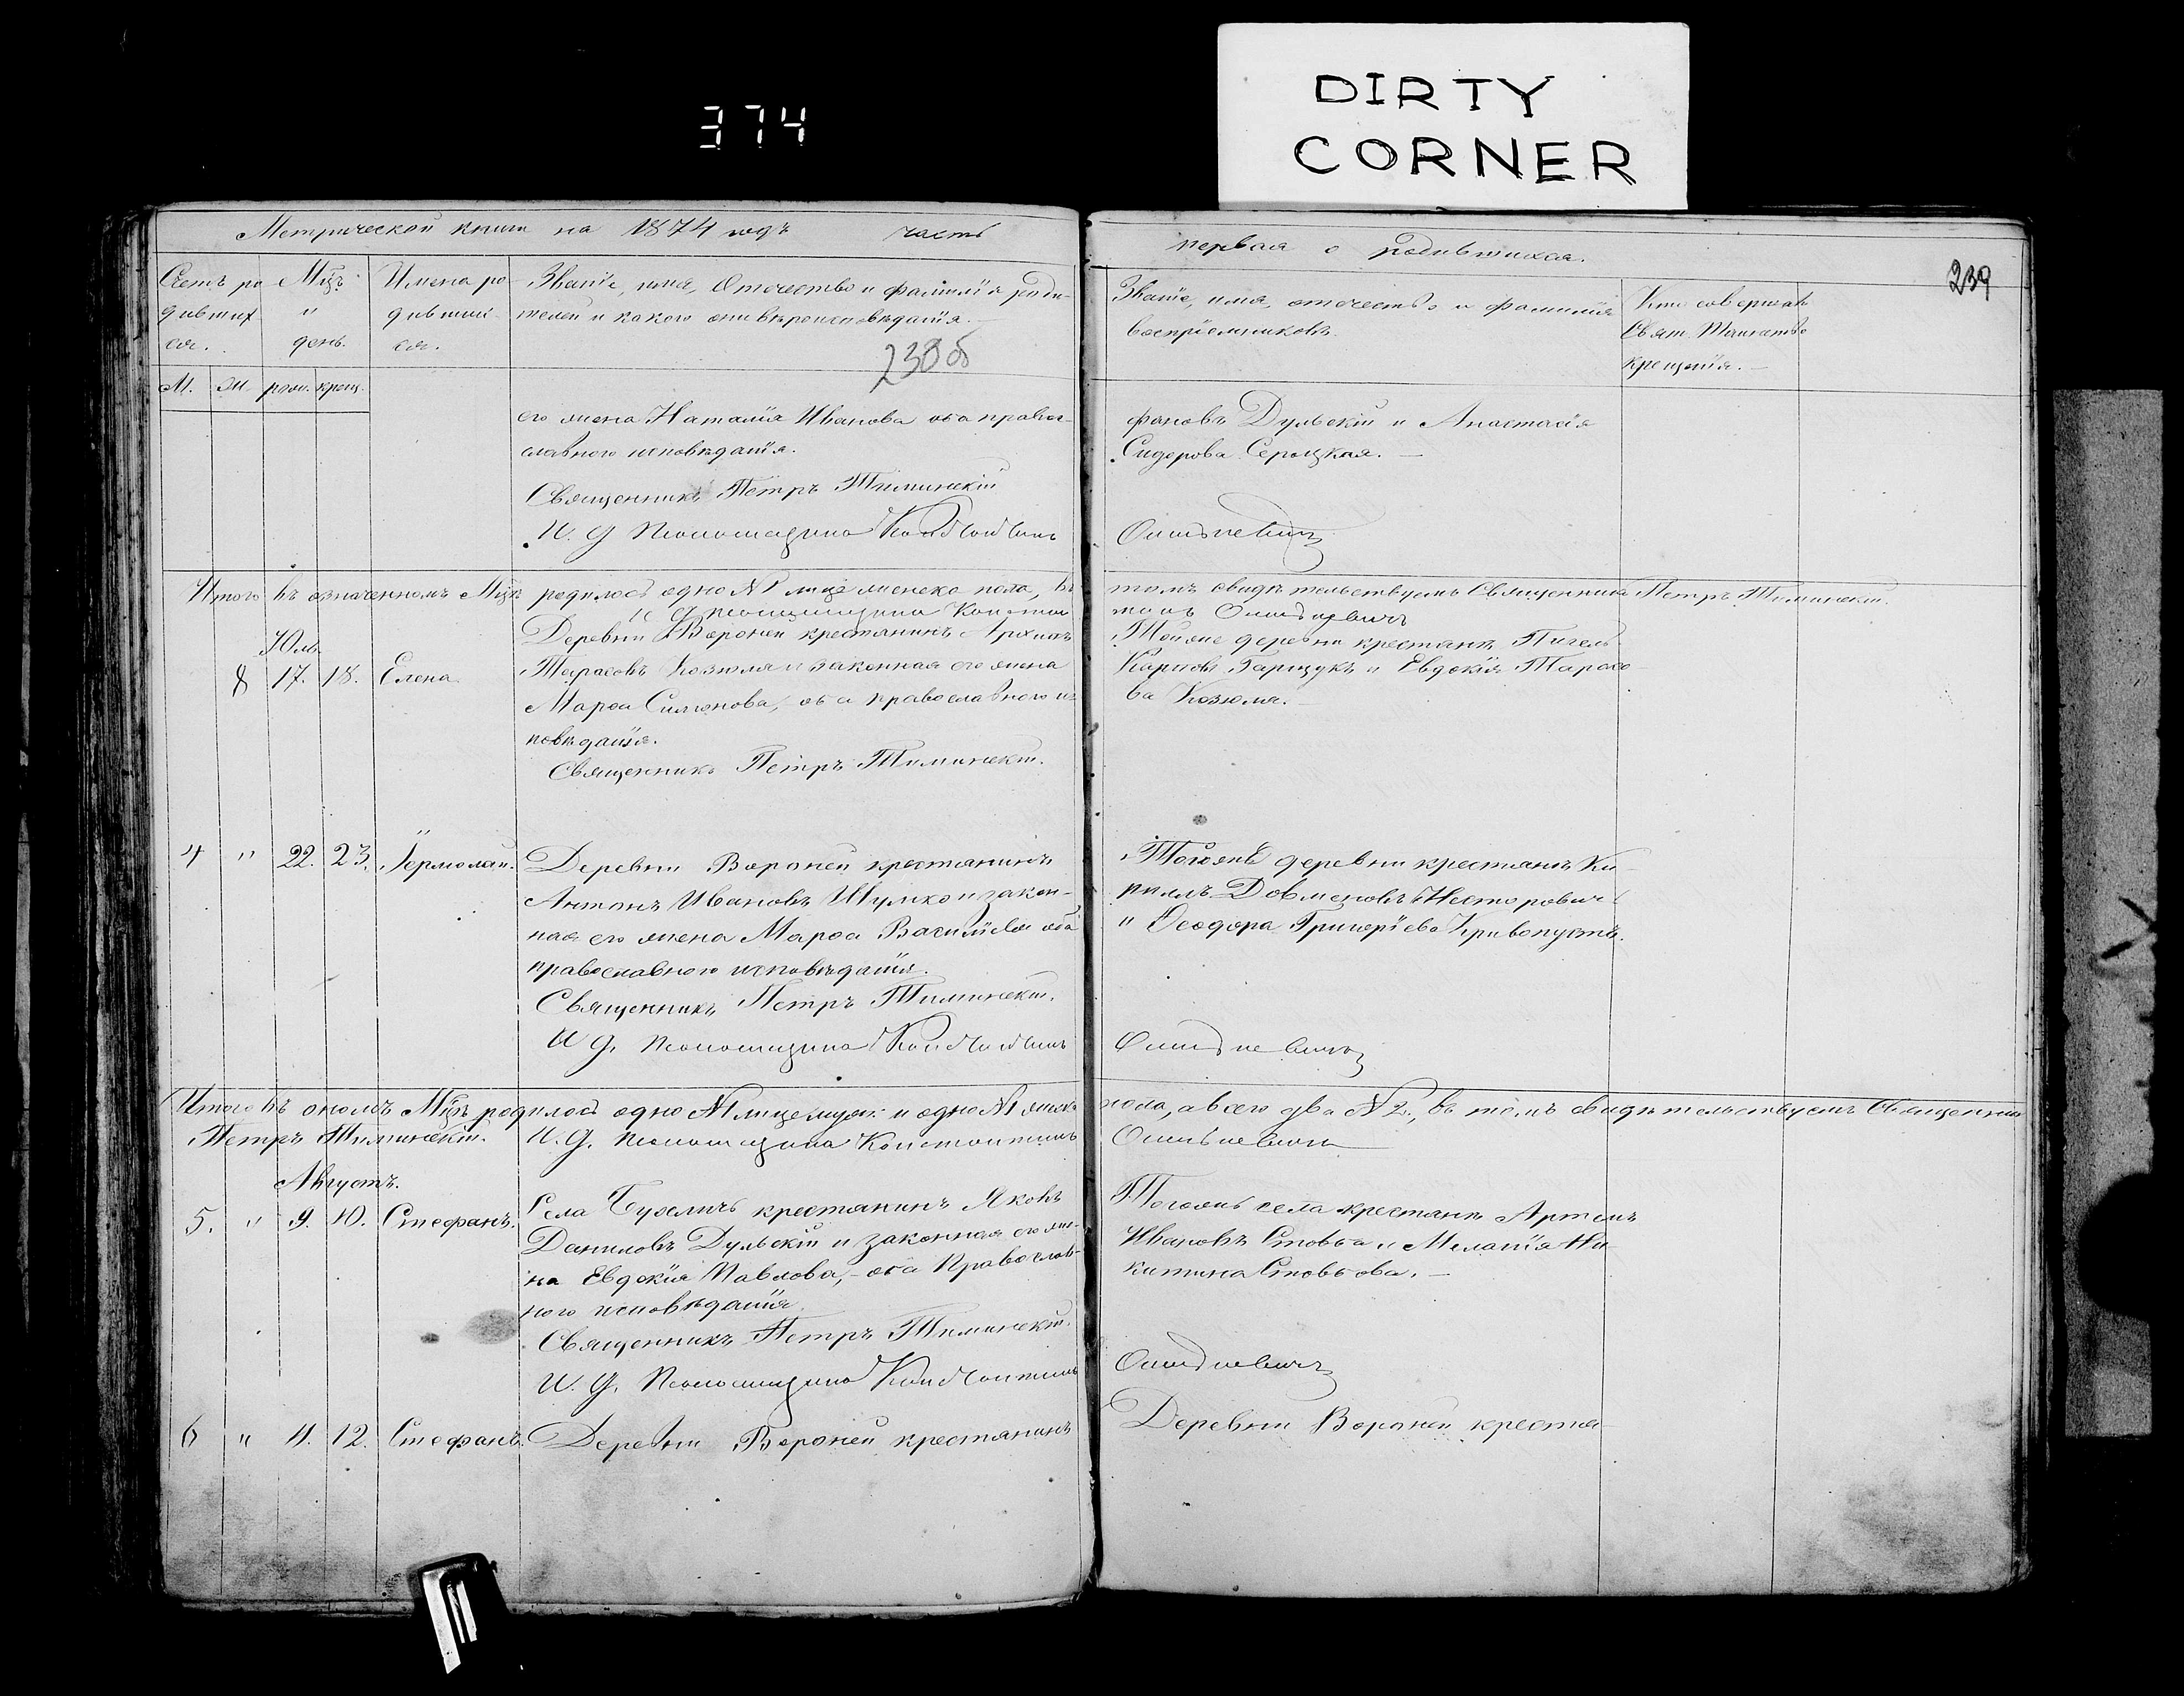 374
DIRTY
CORNER
Метрической книги на 1874 годъ часть
первая о родившихся.
239
Счетъ ро
дивших
ся.
Мцъ
и
день.
Имена ро
дивших
ся.
Званіе, имя, отчество и фамилія роди-
телей и какого они вѣроисповѣданія.
238 об
Званіе, имя, отчество и фамилія
воспріемниковъ.
Кто совершалъ
Свят. Таинство
крещенія.
М. Ж. рож. крещ.
его жена Наталія Иванова оба правос-
славного исповѣданія.
Священникъ Петръ Тиминскій
И. д. Псаломщика Константинъ
фановъ Дульскій и Анастасія
Сидорова Сероцкая.
Итого въ означенномъ Мцѣ родилось одно № 1 лице женска пола, въ
томъ свидѣтельствуемъ Священникъ Петръ Тиминскій.
И д псаломщика Констан
тинъ
Юль
8 17. 18. Елена.
Деревни Вороней крестьянинъ Архипъ
Тарасовъ Козюля и законная его жена
Марѳа Симонова, оба православного ис
повѣданія.
Священникъ Петръ Тиминскій.
Тойже деревни крестьянъ
Карповъ Гарщукъ и Евдокія Тарасо-
ва Козюля.
4 " 22. 23. Іермолай.
Деревни Вороней крестьянинъ
Антонъ Ивановъ Шумко и закон-
ная его жена Марѳа Васильева оба
православного исповѣданія.
Священникъ Петръ Тиминскій.
И д. Псаломщика Константинъ
Тойже деревни крестьянъ Ки-
риллъ Несторовичъ
и Ѳеодора Григоріева Кривопустъ.
Итого въ ономъ Мцѣ родилось одно № 1 лице мужс: и одно № 1 женска
пола, а всего два № 2., въ томъ свидѣтельствуемъ Священникъ
Петръ Тиминскій. И. д. Псаломщика Константинъ
Августъ.
5. " 9. 10. Стефанъ.
Села крестьянинъ Яковъ
Даниловъ Дульскій и законная его же-
на Евдокія Павлова, - оба Православ-
ного исповѣданія.
Священникъ Петръ Тиминскій.
И. д. Псаломщика Константинъ
Тогожъ села крестьянъ Артемъ
Ивановъ и Меланія Ни-
китина
6 " 4. 12. Стефанъ.
Деревни Вороней крестьянинъ
Деревни Вороней крестья-